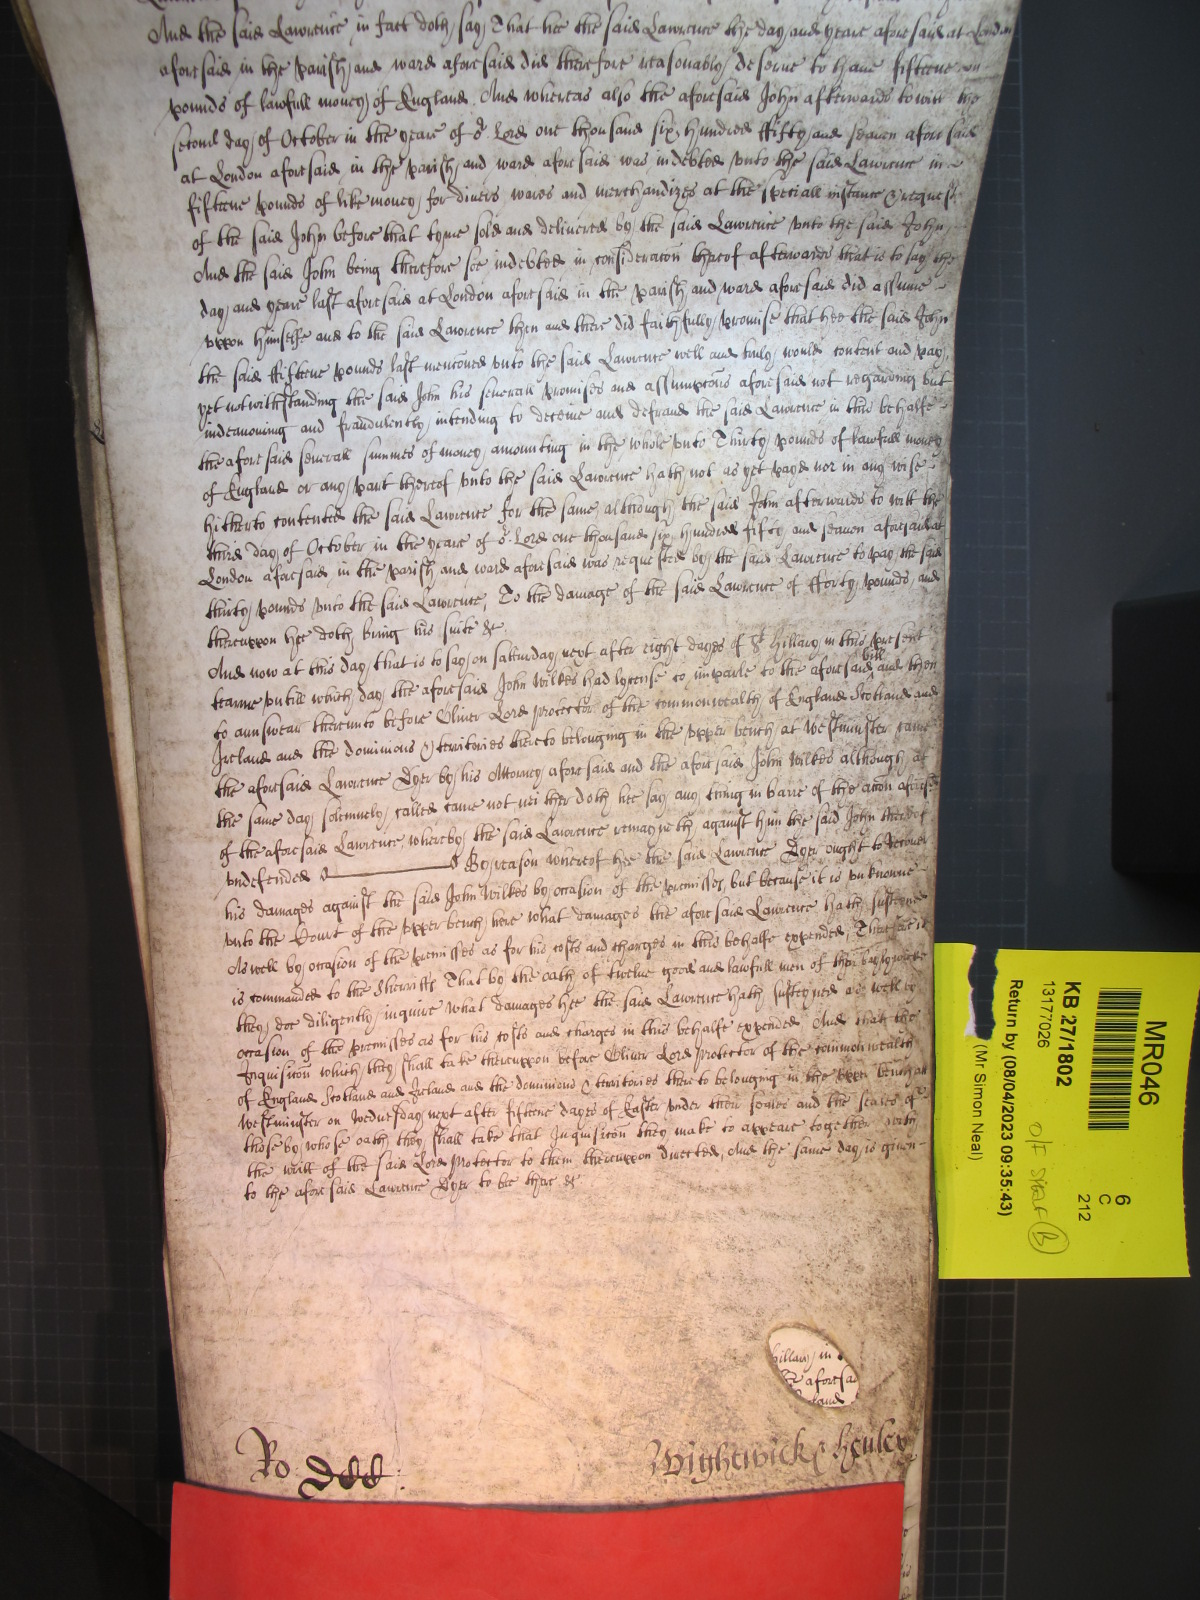 And the said Lawrence in fact doth say That hee the said Lawrence the day and yeare aforesaid at London
aforesaid in the parish and ward aforesaid did therefore reasonably deserue to haue fifteene
pounds of lawfull money of England And whereas also the aforesaid John afterwards to witt the
second day of October in the yeare of oʳ Lord one thousand six hundred ffifty and seauen aforesaid
at London aforesaid in the parish and ward aforesaid was indebted vnto the said Lawrence in
fifteene pounds of like money for diuers wares and merchandizes at the speciall instance & request
of the said John before that tyme sold and deliuered by the said Lawrence vnto the said John
And the said John being therefore soe indebted in consideracon thereof afterwards that is to say the
day and yeare last aforesaid at London aforesaid in the parish and ward aforesaid did assume
vppon himselfe and to the said Lawrence then and there did faithfully promise that hee the said John
the said ffifteene pounds last menconed vnto the said Lawrence well and truly would content and pay
yet notwithstanding the said John his seuerall promises and assumpcons aforesaid not regarding but
indeauoring and fraudulently intending to deceiue and defraud the said Lawrence in this behalfe
the aforesaid seuerall summes of money amounting in the whole vnto Thirty pounds of lawfull money
of England or any part thereof vnto the said Lawrence hath not as yet payd nor in any wise
hitherto contented the said Lawrence for the same although the said John afterwards to witt the
third day of October in the yeare of oʳ Lord one thousand six hundred fifty and seauen aforesaid at
London aforesaid in the parish and ward aforesaid was requested by the said Lawrence to pay the said
thirty pounds vnto the said Lawrence, To the damage of the said Lawrence of fforty pounds and
therevppon hee doth bring his suite &c
And now at this day that is to say on Saturday next after eight dayes of Sᵗ Hillary in this present
tearme vntill which day the aforesaid John Wilkes had lycense to imparle to the aforesaid bill and then
to aunswear thereunto before Oliver Lord protector of the commonwealth of England Scotland and
Ireland and the dominions & territories thereto belonging in the vpper bench at Westminster came
the aforesaid Lawrence Dyer by his Attorney aforesaid and the aforesaid John Wilkes although at
the same day solemnely called came not neither doth hee say any thing in barre of the accon aforesd
of the aforesaid Lawrence whereby the said Lawrence remayneth against him the said John thereof
vndefended By reason whereof hee the said Lawrence Dyer ought to Recouer
his damages against the said John Wilkes by occasion of the premisses, but because it is vnknowne
vnto the Court of the vpper bench here what damages the aforesaid Lawrence hath susteyned
as well by occasion of the premisses as for his costs and charges in this behalfe expended, Therefore it
is commanded to the Sherriffs That by the oath of twelue good and lawfull men of their baylywicke
they doe diligently inquire what damages hee the said Lawrence hath susteyned as well by
occasion of the premisses as for his costs and charges in this behalfe expended And that the
Inquisicon which they shall take therevppon before Oliver Lord Protector of the commonwealth
of England Scotland and Ireland and the dominions & territories thereto belonging in the vpper bench at
Westminster on Wednesday next after fifteene dayes of Easter vnder their seales and the seales of
those by whose oath they shall take that Inquisicon they make to appeare together with
the writt of the said Lord Protector to them therevppon directed, And the same day is giuen
to the aforesaid Lawrence Dyer to bee there &c
hillary in
aforesaid
Ro
Wightwick & Henley
MR046
KB 27/1802
13177026
Return by (08/04/2023 09:35:43)
(Mr Simon Neal)
6
C
212
B